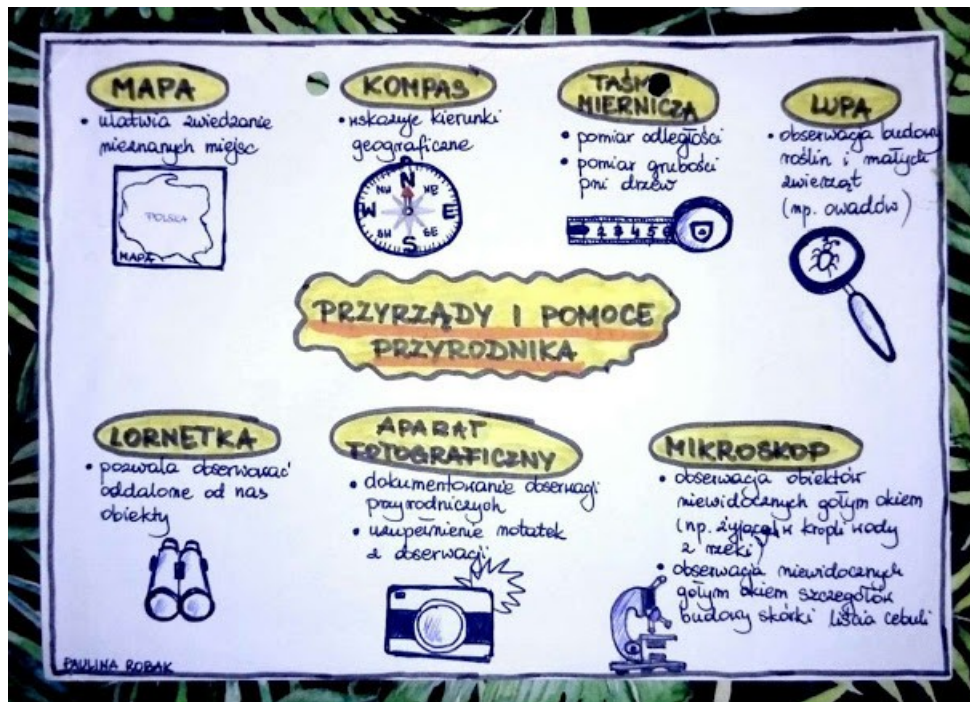 MAPA
• ułatwia zwiedzanie
nieznanych miejsc
POLSKA
MAPA
KOMPAS
• wskazuje kierunki
geograficzne
N
NW
NE
W
E
SW
SE
S
TAŚMA
MIERNICZA
• pomiar odległości
• pomiar grubości
pni drzew
1 2 3 4 5 6
LUPA
• obserwacja budowy
roślin i małych
zwierząt
(np. owadów)
PRZYRZĄDY I POMOCE
PRZYRODNIKA
LORNETKA
• pozwala obserwować
oddalone od nas
obiekty
APARAT
FOTOGRAFICZNY
• dokumentowanie obserwacji
przyrodniczych
• uzupełnienie notatek
z obserwacji
MIKROSKOP
• obserwacja obiektów
niewidocznych gołym okiem
(np. żyjących w kropli wody
z rzeki)
• obserwacja niewidocznych
gołym okiem szczegółów
budowy skórki liścia cebuli
PAULINA ROBAK